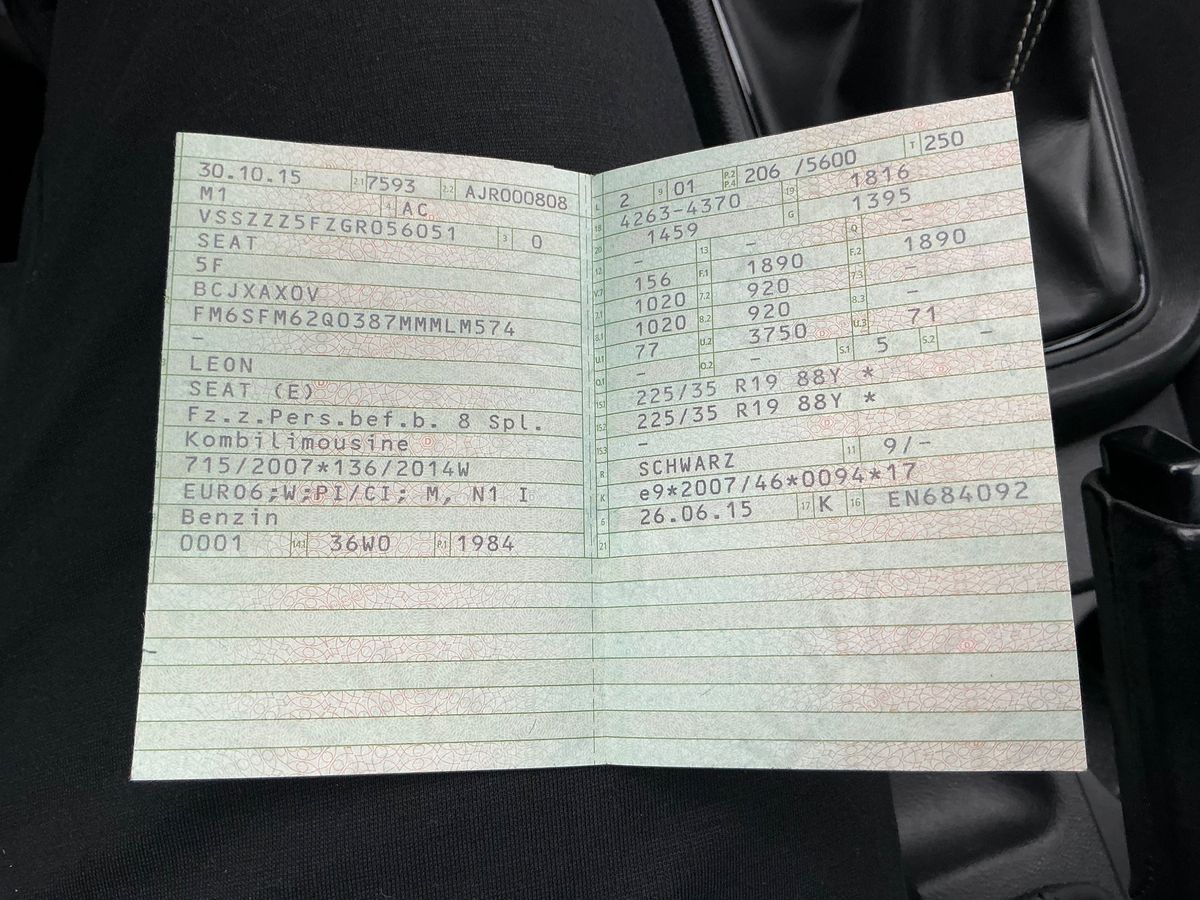 30.10.15 2.1 7593 2.2 AJR000808
M1 4 AC
VSSZZZ5FZGR056051 3 0
SEAT
5F
BCJXAX0V
FM6SFM62Q0387MMMLM574
–
LEON
SEAT (E)
Fz.z.Pers.bef.b. 8 Spl.
Kombilimousine
715/2007*136/2014W
EURO6;W;PI/CI; M, N1 I
Benzin
0001 14.1 36W0 P.1 1984
L 2 9 01 P.2 P.4 206 /5600 T 250
18 4263-4370 19 1816
20 1459 G 1395
12 – 13 – Q –
V.7 156 F.1 1890 F.2 1890
7.1 1020 7.2 920 7.3 –
8.1 1020 8.2 920 8.3 –
U.1 77 U.2 3750 U.3 71
O.1 – O.2 – S.1 5 S.2 –
15.1 225/35 R19 88Y *
15.2 225/35 R19 88Y *
15.3 –
R SCHWARZ 11 9/-
K e9*2007/46*0094*17
6 26.06.15 17 K 16 EN684092
21